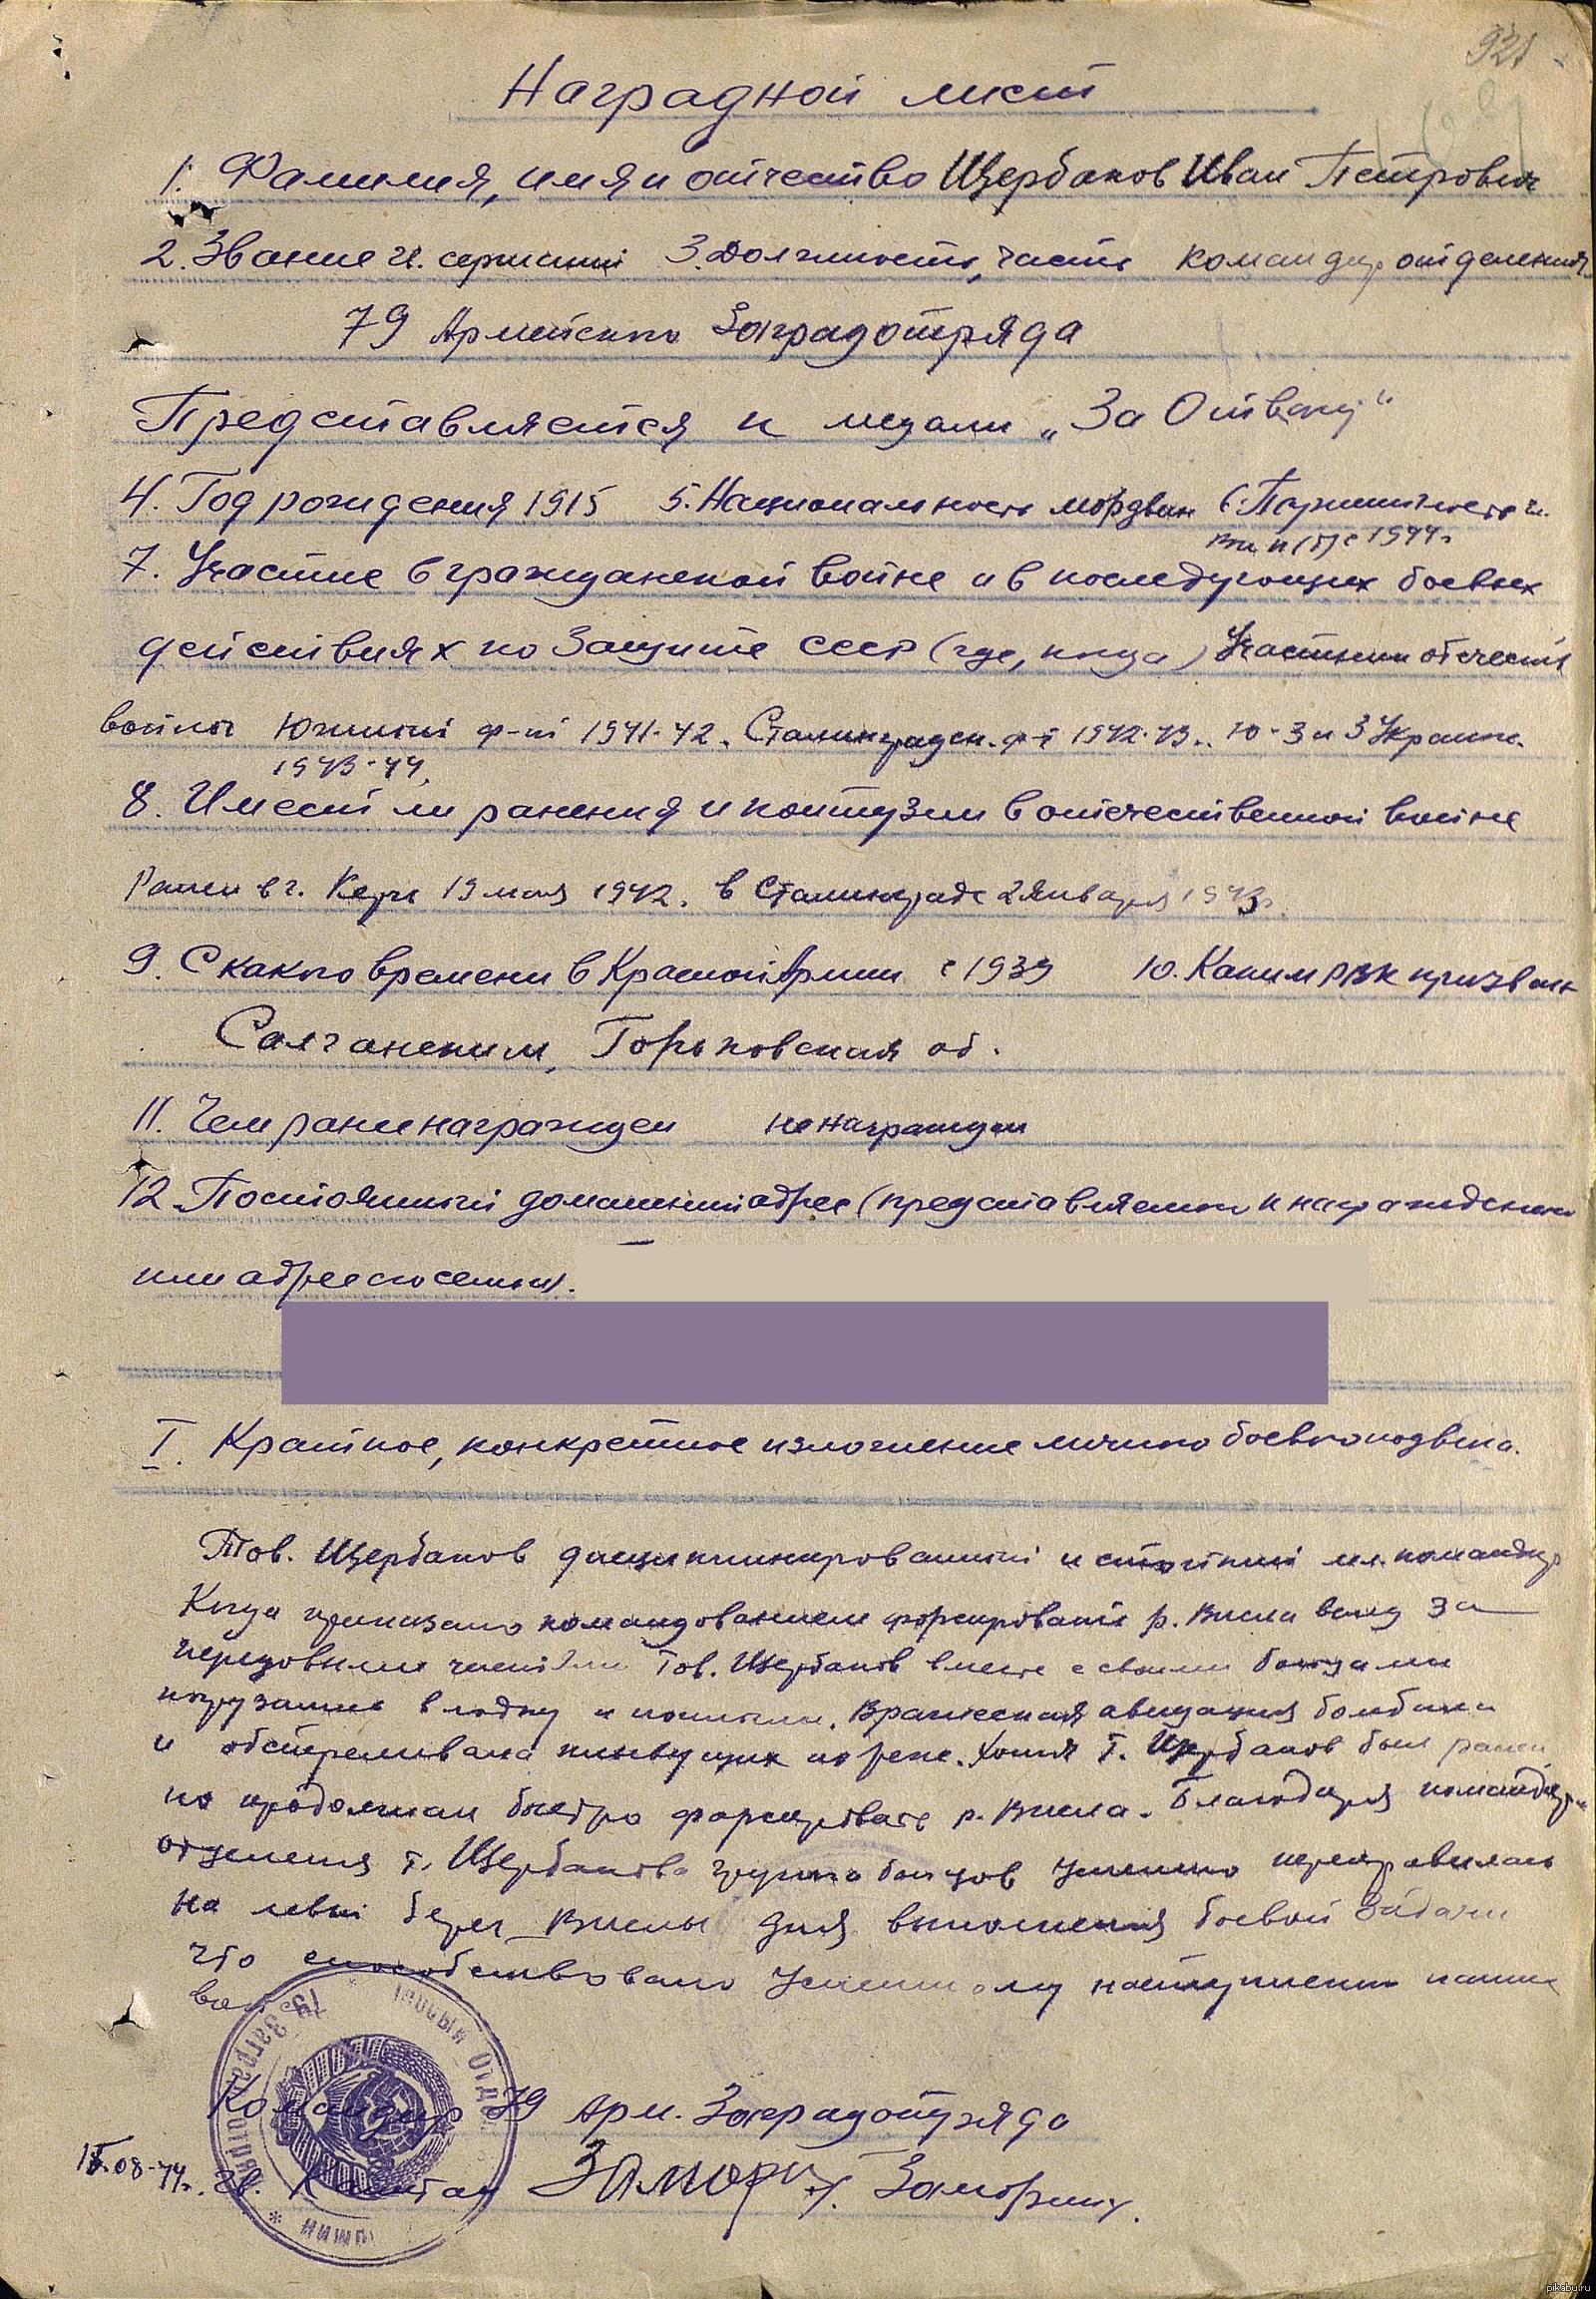 921
Наградной лист
1. Фамилия, имя и отчество Щербаков Иван Петрович
2. Звание гв. сержант 3. Должность, часть командир отделения
79 Армейского Заградотряда
Представляется к медали „За Отвагу“
4. Год рождения 1915 5. Национальность мордвин 6. Партийность чл.
ВКП(б) с 1944г.
7. Участие в гражданской войне и в последующих боевых
действиях по защите СССР (где, когда) Участник отечеств.
войны Южный ф-т 1941-42. Сталинградск. ф-т 1942-43.. Ю-З и 3 Украинс.
1943-44.
8. Имеет ли ранения и контузии в отечественной войне
Ранен в г. Керчь 19 мая 1942. в Сталинграде 2 января 1943г.
9. С какого времени в Красной Армии с 1939 10. Каким РВК призван
Салганским, Горьковская об.
11. Чем ранее награжден не награжден
12. Постоянный домашний адрес (представляемого к награждению
или адрес его семьи).
I. Краткое, конкретное изложение личного боевого подвига.
Тов. Щербаков дисциплинированный и стойкий мл. командир
Когда приказано командованием форсировать р. Висла вслед за
передовыми частями Тов. Щербаков вместе с своими бойцами
погрузились в лодку и поплыли. Вражеская авиация бомбила
и обстреливала плывущих по реке. Хотя т. Щербаков был ранен
но продолжал быстро форсировать р. Висла. Благодаря командира
отделения т. Щербакова группа бойцов успешно переправилась
на левый берег Вислы для выполнения боевой задачи
что способствовало успешному наступлению наших
войск
Командир 79 Арм. Заградотряда
15.08-44г. гв. Капитан Заморин /. Заморин/.
pikabu.ru